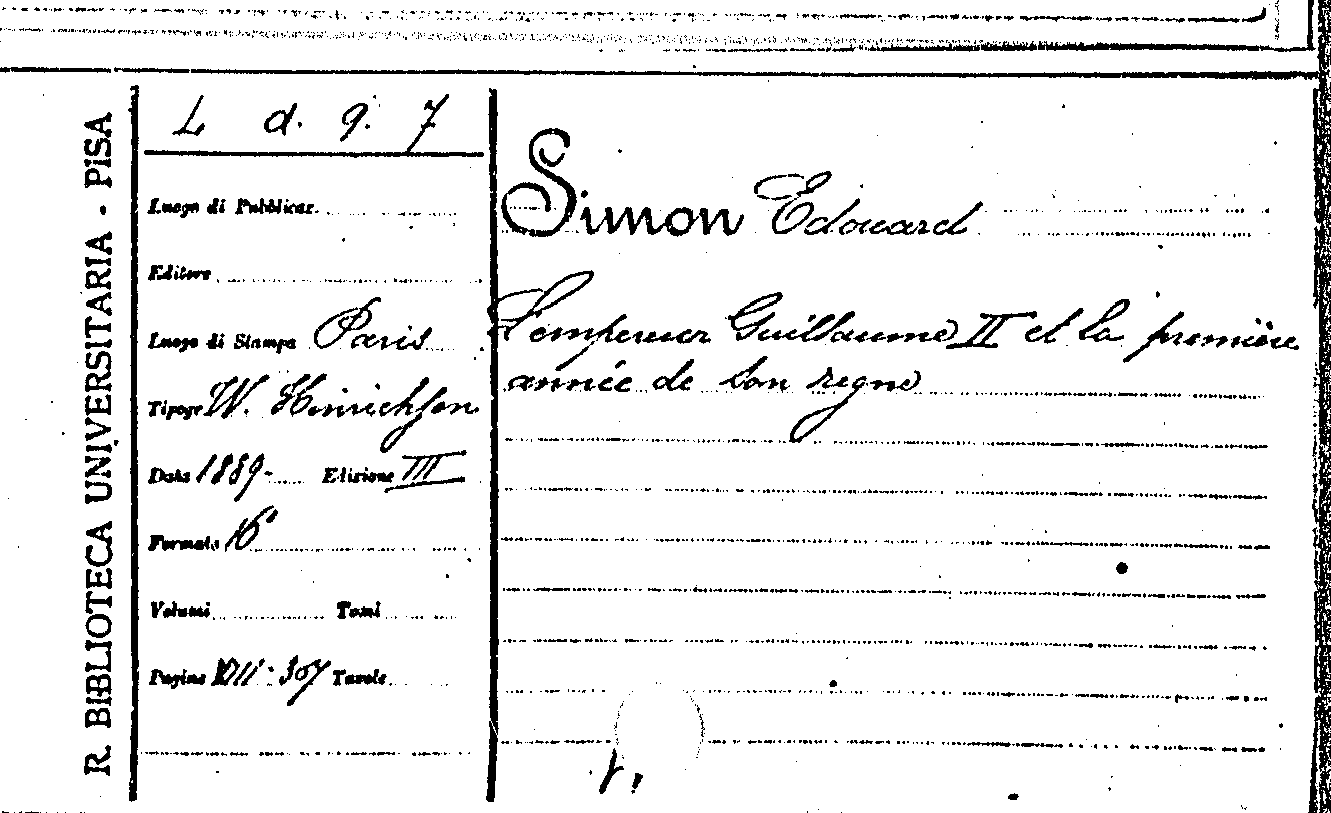 R. BIBLIOTECA UNIVERSITARIA - PISA
L d. 9. 7
Luogo di Pubblicaz.
Editore
Luogo di Stampa Paris
Tipogr W. Hinrichsen
Data 1889- Edizione III
Formato 16°
Volumi Tomi
Pagine VIII-307 Tavole
Simon Edouard
L'empereur Guillaume II et la première
année de son regne